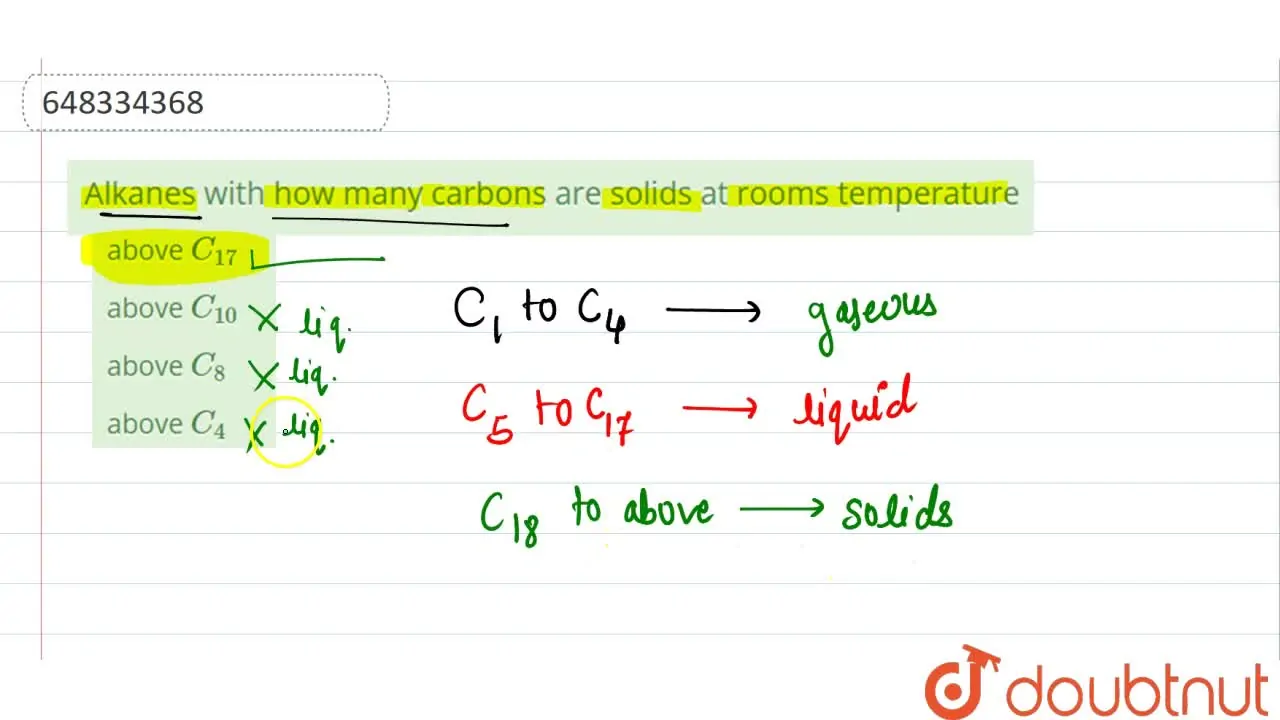 648334368
Alkanes with how many carbons are solids at rooms temperature
above C₁₇
above C₁₀ × liq.
above C₈ × liq.
above C₄ × liq.
C₁ to C₄ → gaseous
C₅ to C₁₇ → liquid
C₁₈ to above → solids
doubtnut